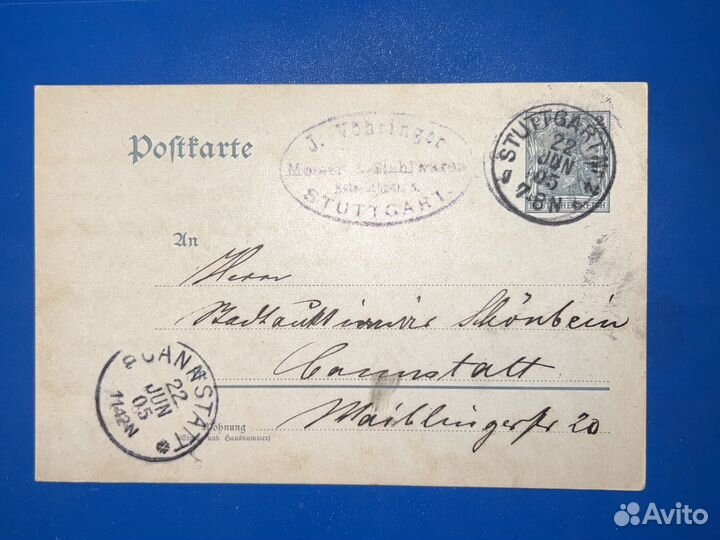 Postkarte
J. Vöhringer
Messer & Stahlwaren
STUTTGART.
STUTTGART
22
JUN
05
7-8N
2
DEUTSCHES REICH
An
Herrn
Stadtauktionär Schönbein
Cannstatt
Waiblingerstr 20
Wohnung
(Straße und Hausnummer)
CANNSTATT
22
JUN
05
11-12N
Avito